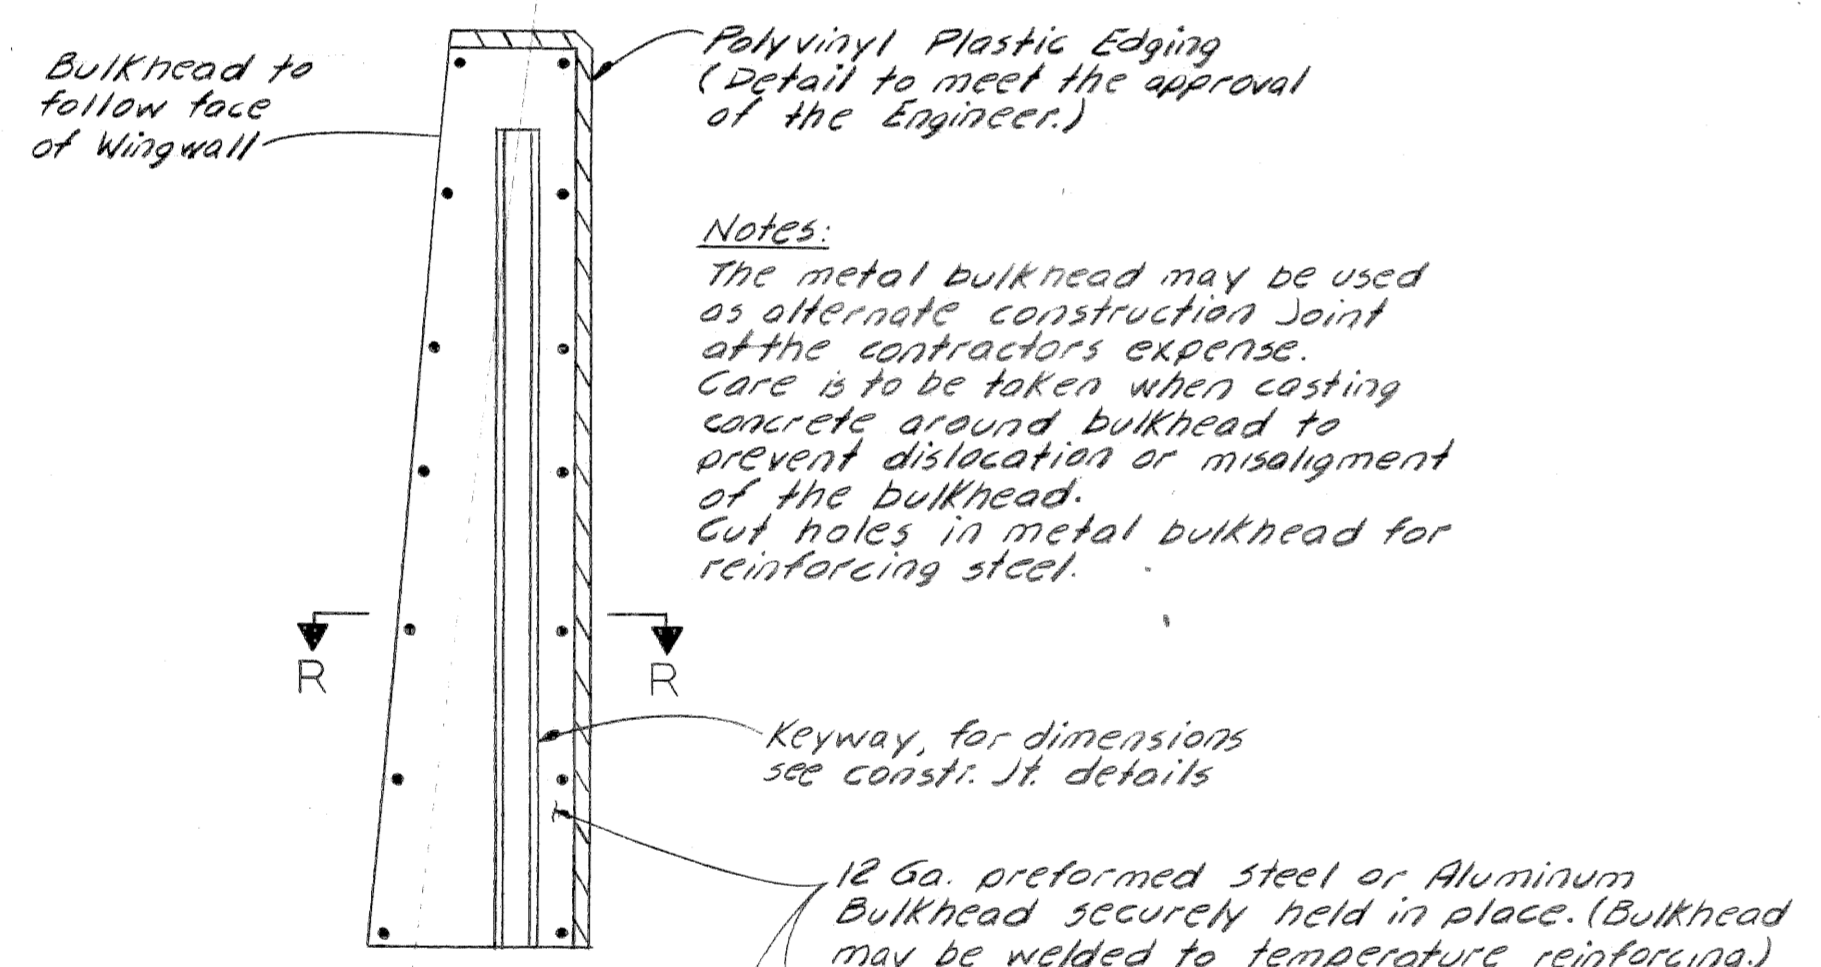 Bulkhead to
follow face
of Wingwall
Polyvinyl Plastic Edging
(Detail to meet the approval
of the Engineer.)
Notes:
The metal bulkhead may be used
as alternate construction Joint
at the contractors expense.
Care is to be taken when casting
concrete around bulkhead to
prevent dislocation or misaligment
of the bulkhead.
Cut holes in metal bulkhead for
reinforcing steel.
R
R
Keyway, for dimensions
see constr. Jt. details
12 Ga. preformed Steel or Aluminum
Bulkhead securely held in place. (Bulkhead
may be welded to temperature reinforcing.)